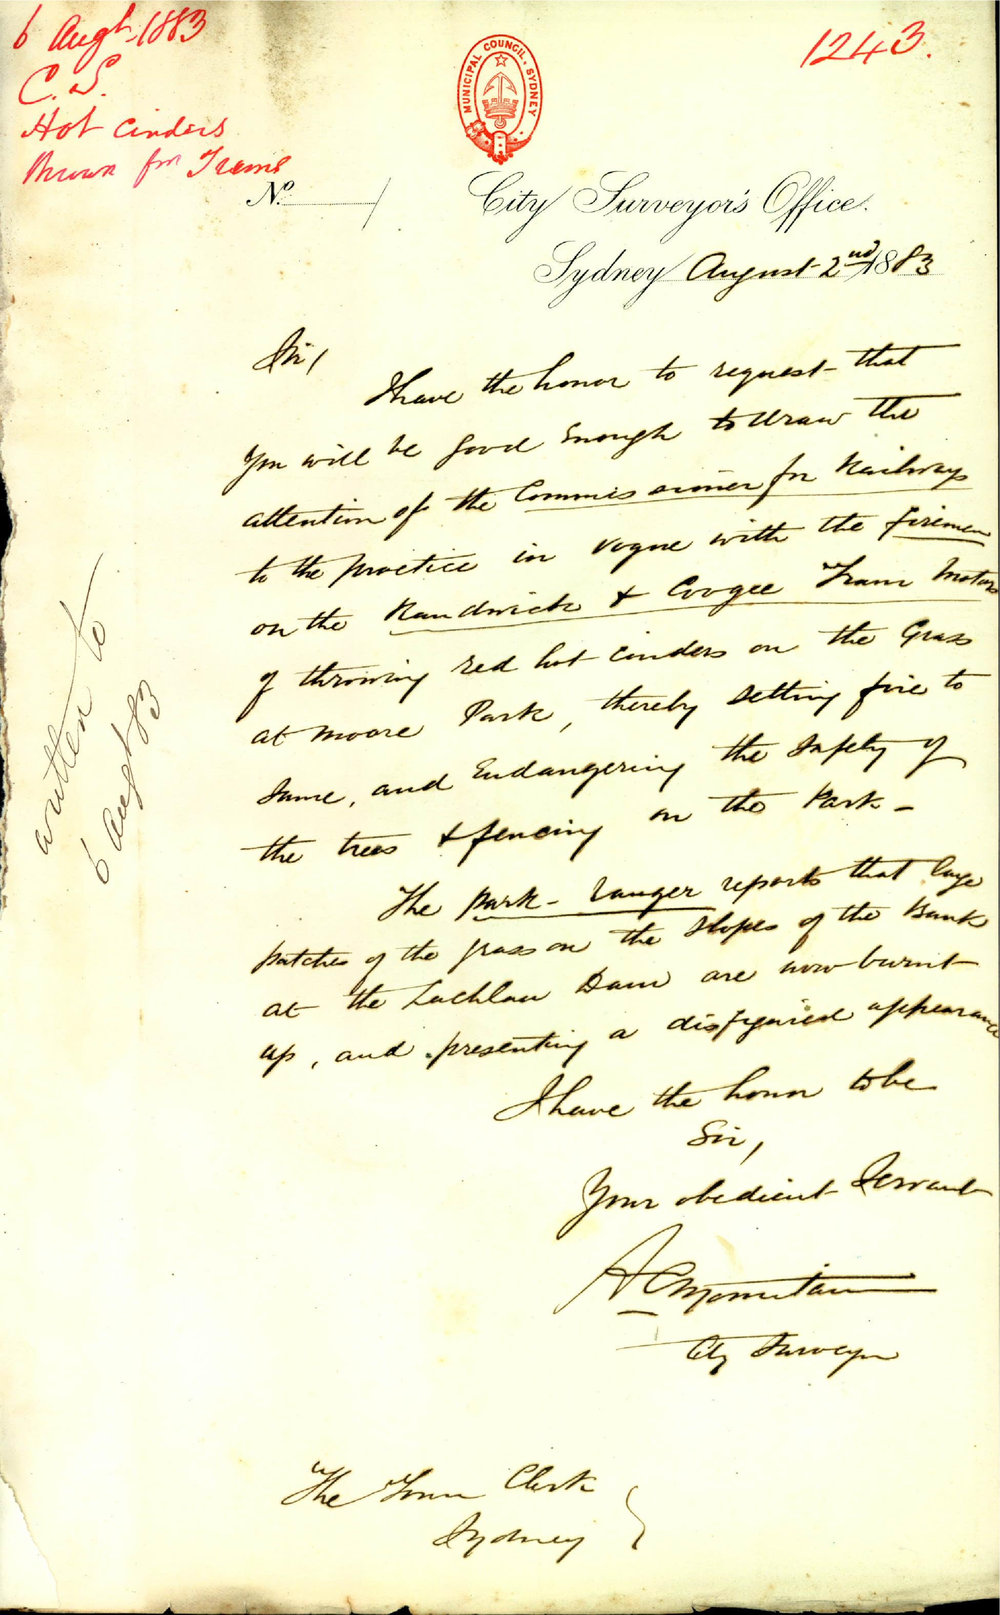 6 Augt. 1883
C. S.
Hot cinders
thrown from Trams
1243.
MUNICIPAL COUNCIL. SYDNEY
No.
City Surveyor's Office.
Sydney August 2nd 1883
Sir,
I have the honor to request that
you will be good enough to draw the
attention of the Commissioner for Railways
to the practice in vogue with the firemen
on the Randwick & Coogee Tram Motors
of throwing red hot cinders on the Grass
at Moore Park, thereby setting fire to
same, and Endangering the safety of
the trees & fencing on the Park -
The Park-ranger reports that large
patches of the grass on the slopes of the Bank
at the Lachlan Dam are now burnt
up, and presenting a disfigured appearance
I have the honor to be
Sir,
Your obedient Servant
City Surveyor
The Town Clerk
Sydney
written to
6 Augt 83